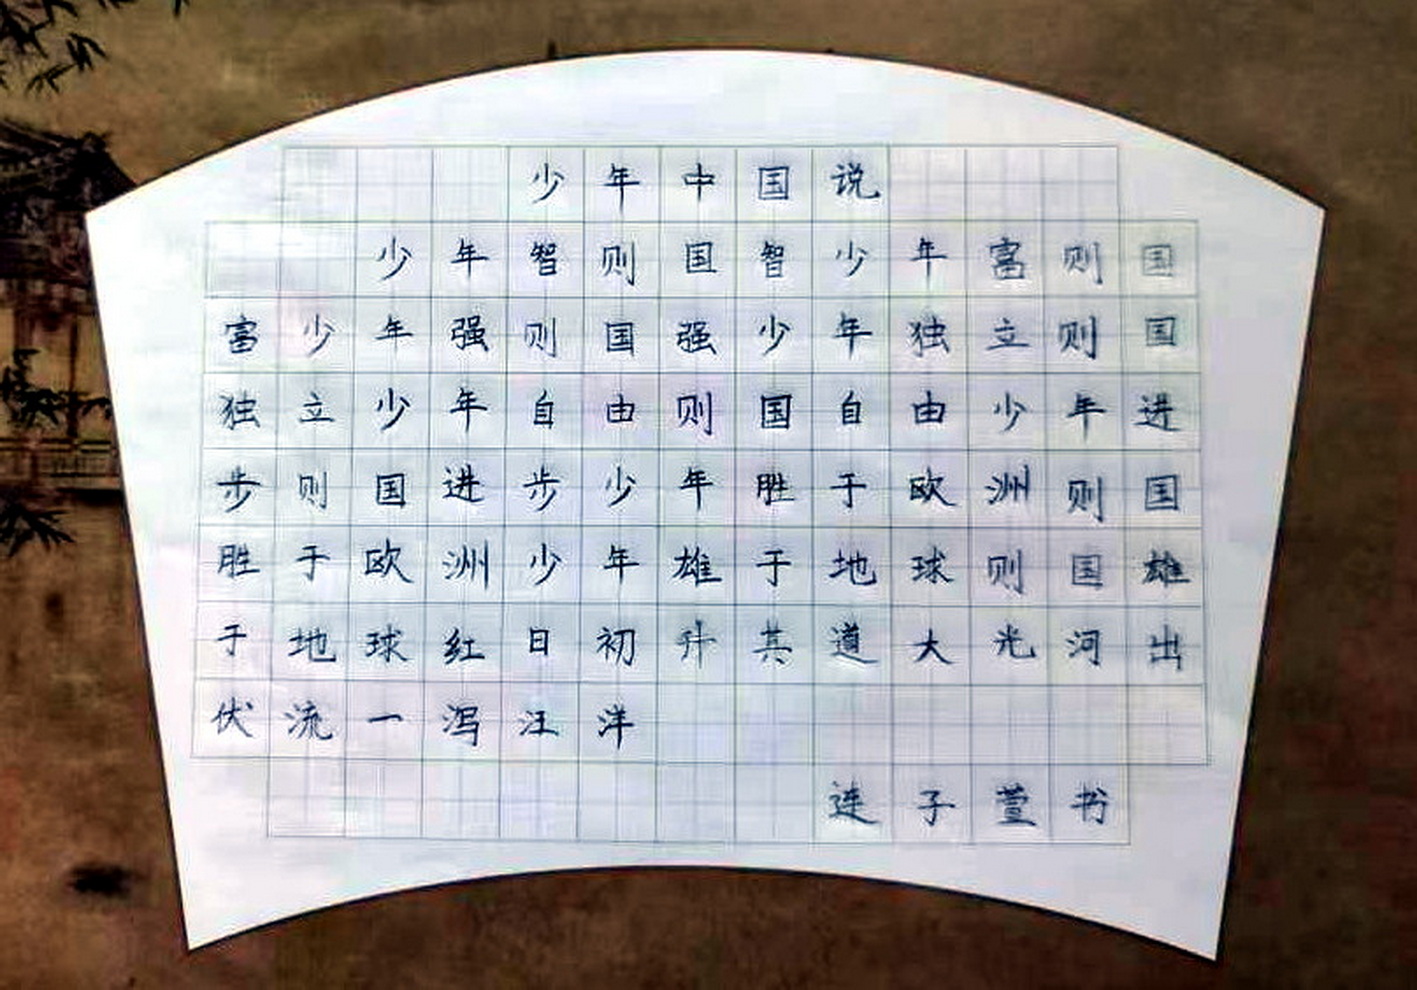 少年中国说
少年智则国智少年富则国
富少年强则国强少年独立则国
独立少年自由则国自由少年进
步则国进步少年胜于欧洲则国
胜于欧洲少年雄于地球则国雄
于地球红日初升其道大光河出
伏流一泻汪洋
连子萱书